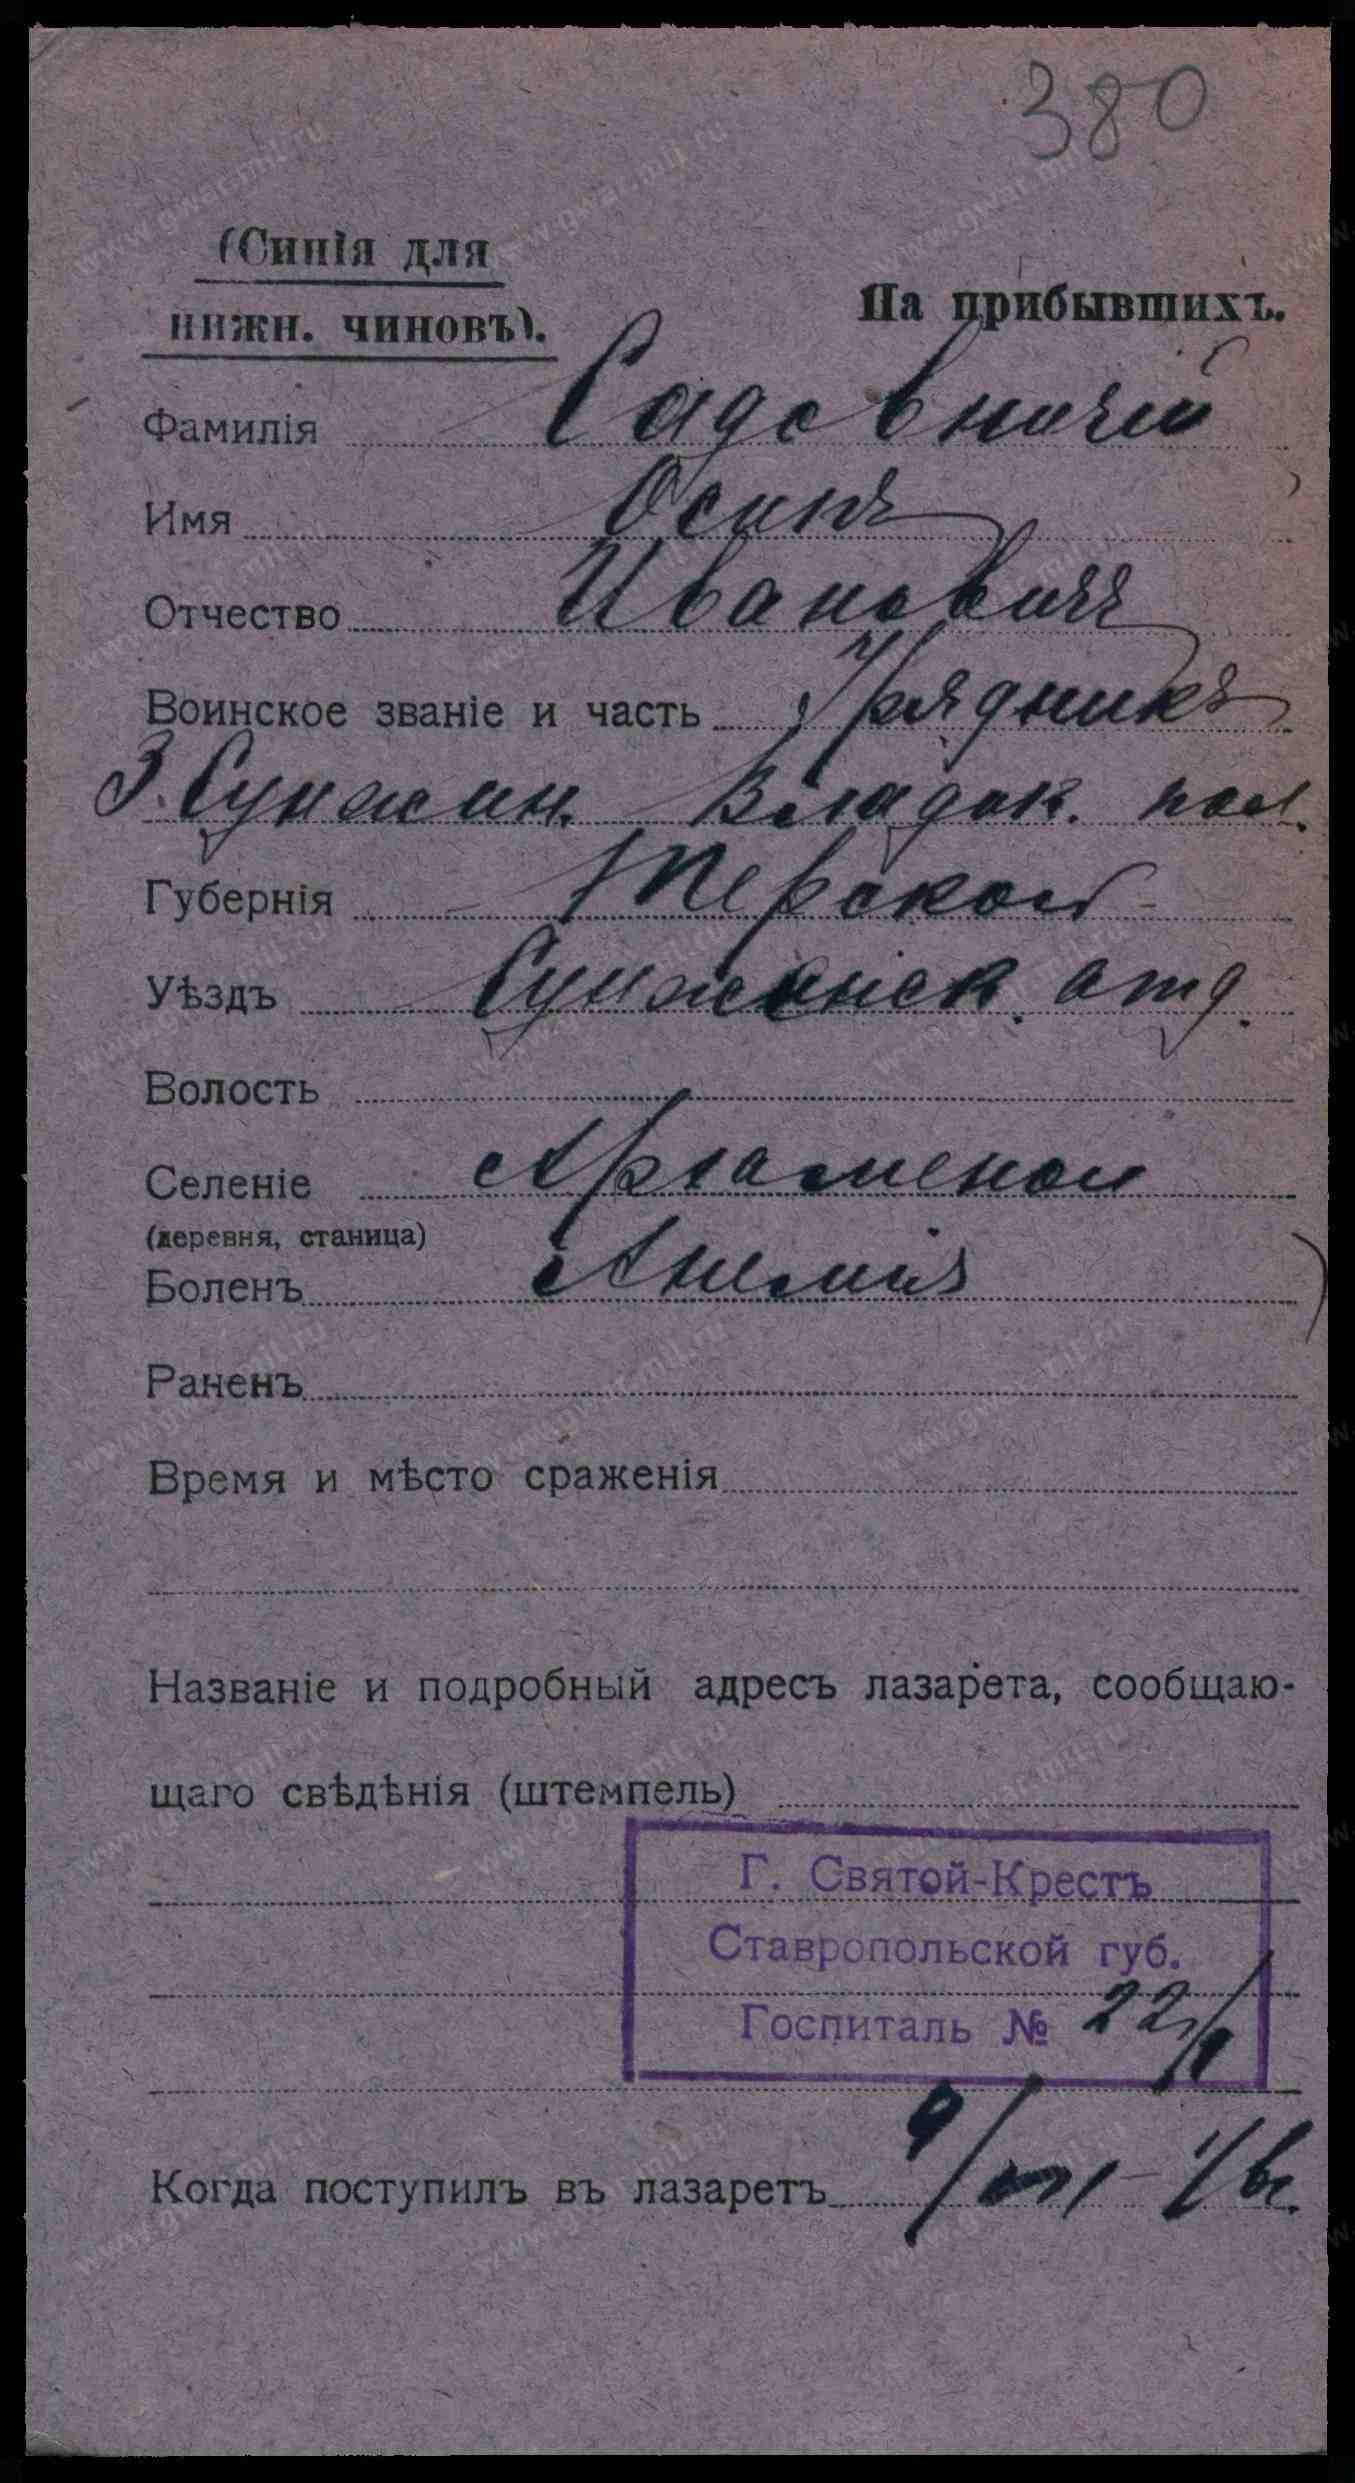 380
(Синія для
нижн. чиновъ).
На прибывшихъ.
Фамилія Садовничій
Имя Осипъ
Отчество Ивановичъ
Воинское званіе и часть Урядникъ
3. Сунжин. Владик. пол.
Губернія Терской
Уѣздъ Сунженск. отд.
Волость
Селеніе
(деревня, станица)
Боленъ Анемія
Раненъ
Время и мѣсто сраженія
Названіе и подробный адресъ лазарета, сообщаю-
щаго свѣдѣнія (штемпель)
Г. Святой-Крестъ
Ставропольской губ.
Госпиталь № 22/1
Когда поступилъ въ лазаретъ
www.gwar.mil.ru